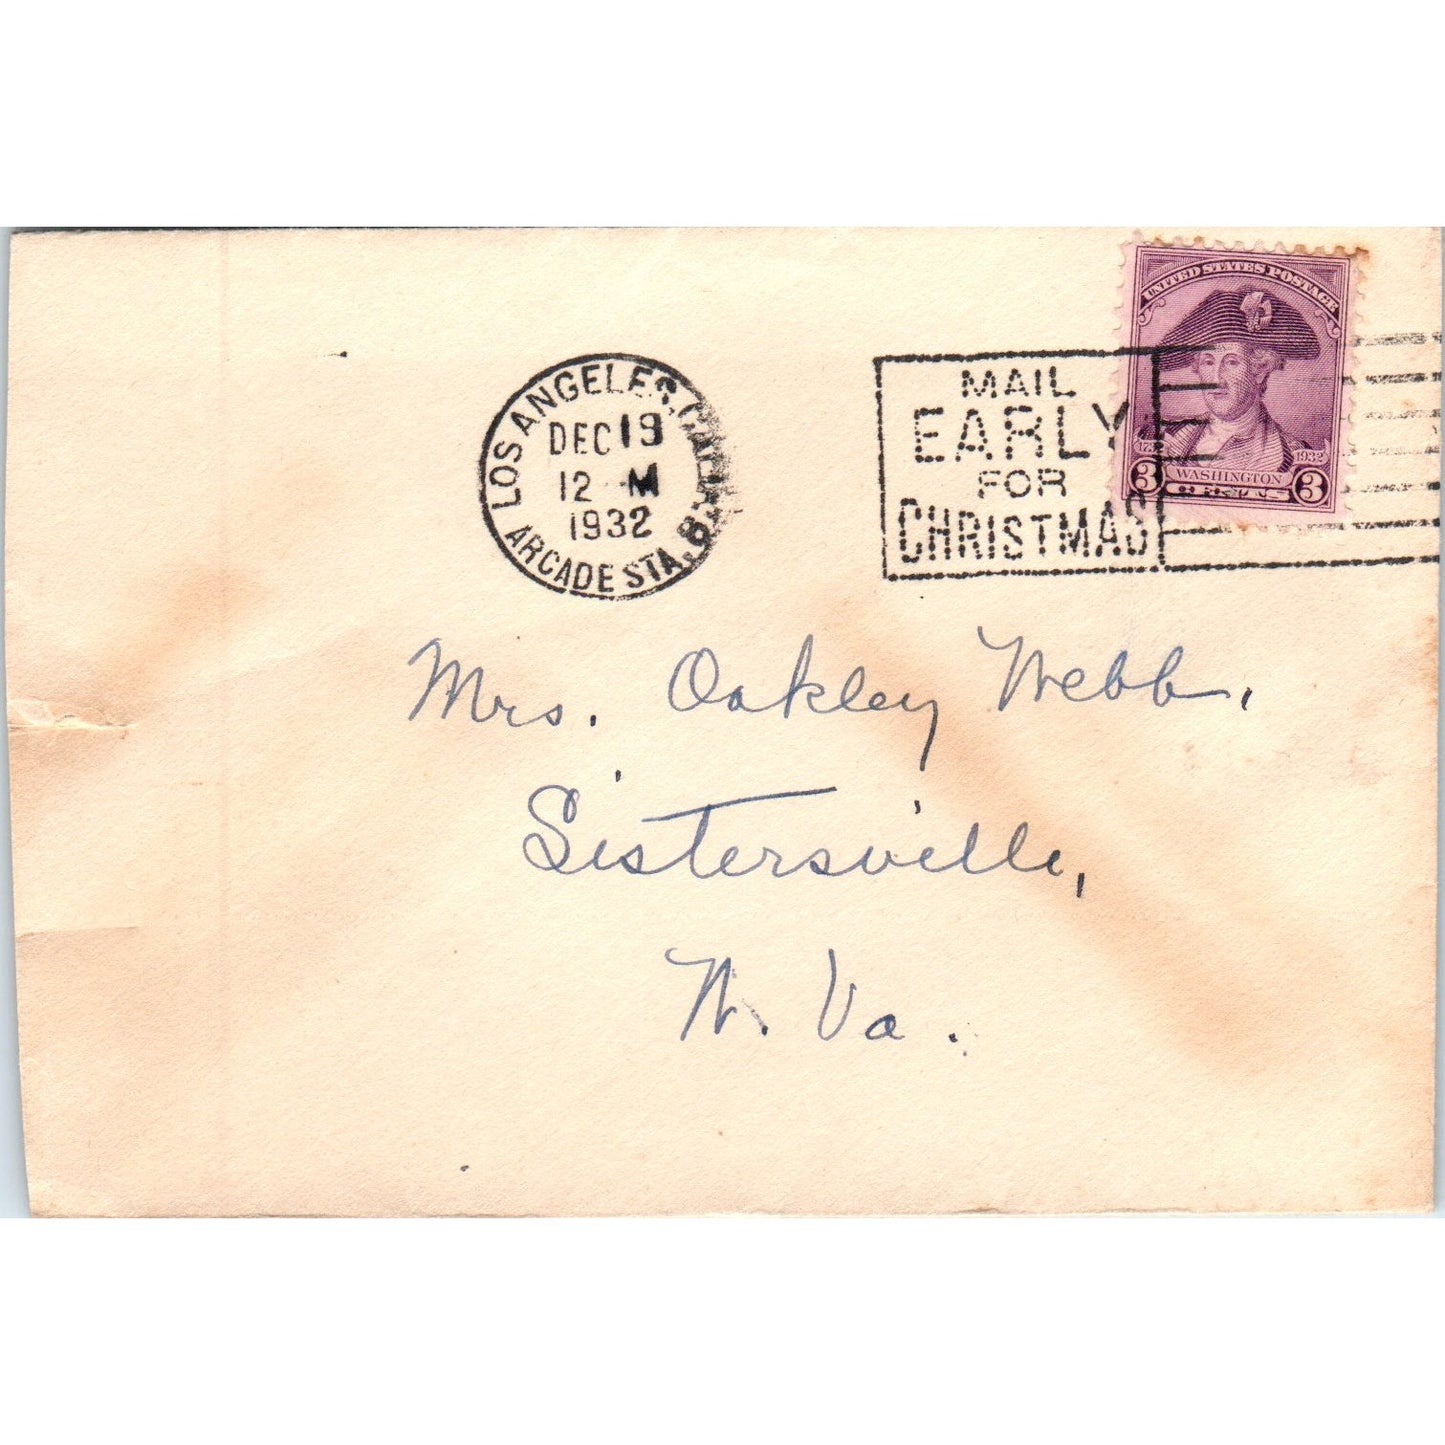 LOS ANGELES, CALIF.
DEC 19
12 M
1932
ARCADE STA.
MAIL
EARLY
FOR
CHRISTMAS
UNITED STATES POSTAGE
1732 1932
WASHINGTON
3 CENTS 3
Mrs. Oakley Webb,
Sistersville,
W. Va.